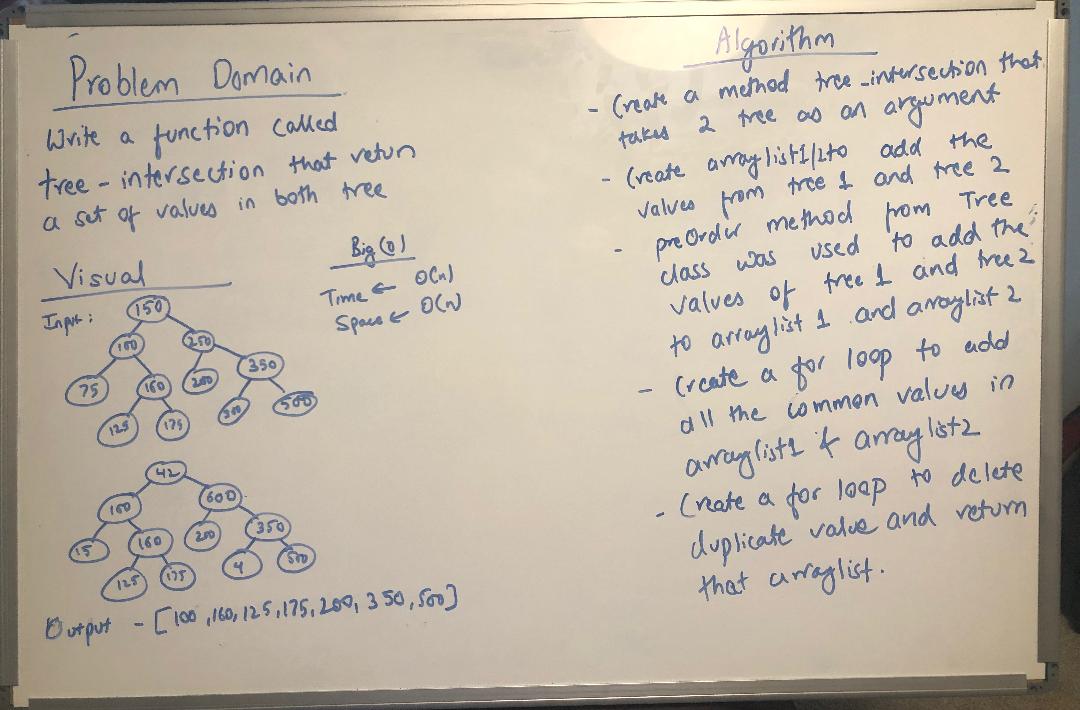 Problem Domain
Write a function called
tree - intersection that retun
a set of values in both tree
Visual
Input:
150
100
250
75
160
200
350
125
175
300
500
42
100
600
15
160
200
350
125
175
4
500
Output - [100,160,125,175,200,350,500]
Big(O)
Time ← O(n)
Space ← O(n)
Algorithm
- Create a method tree_intersection that
takes 2 tree as an argument
- Create arraylist1/2 to add the
values from tree 1 and tree 2
- preOrder method from Tree
class was used to add the
values of tree 1 and tree 2
to arraylist 1 and arraylist 2
- Create a for loop to add
all the common values in
arraylist1 & arraylist2
- Create a for loop to delete
duplicate value and return
that arraylist.